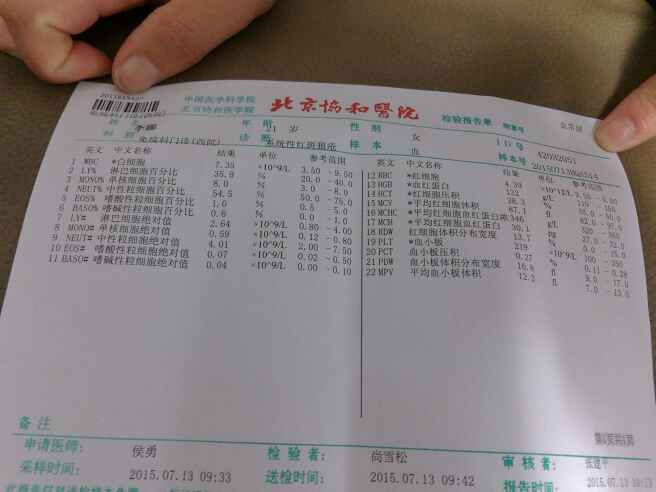 中国医学科学院
北京协和医学院
北京协和醫院
检验报告单
年 龄 21 岁
性 别 女
科 别 免疫科门诊(西院)
诊 断 系统性红斑狼疮
样 本 血
I D 号
样本号
英文 中文名称 结果 单位 参考范围
1 WBC *白细胞 7.35 ×10^9/L 3.50 ~9.50
2 LY% 淋巴细胞百分比 35.9 % 20.0 ~40.0
3 MONO% 单核细胞百分比 8.0 % 3.0 ~8.0
4 NEUT% 中性粒细胞百分比 54.5 % 50.0 ~75.0
5 EOS% 嗜酸性粒细胞百分比 1.0 % 0.5 ~5.0
6 BASO% 嗜碱性粒细胞百分比 % 0.0 ~1.0
7 LY# 淋巴细胞绝对值 2.64 ×10^9/L 0.80 ~4.00
8 MONO# 单核细胞绝对值 0.59 ×10^9/L 0.12 ~0.80
9 NEUT# 中性粒细胞绝对值 4.01 ×10^9/L 2.00 ~7.50
10 EOS# 嗜酸性粒细胞绝对值 0.07 ×10^9/L 0.02 ~0.50
11 BASO# 嗜碱性粒细胞绝对值 0.04 ×10^9/L 0.00 ~0.10
英文 中文名称 结果 单位 参考范围
12 RBC *红细胞 4.39
13 HGB *血红蛋白 132
14 HCT *红细胞压积 38.3 %
15 MCV *平均红细胞体积 87.1
16 MCHC *平均红细胞血红蛋白浓 346
17 MCH *平均红细胞血红蛋白 30.1
18 RDW 红细胞体积分布宽度 13.7 %
19 PLT *血小板 219 ×10^9/L 100 ~350
20 PCT 血小板压积 0.27 % 0.11 ~0.28
21 PDW 血小板体积分布宽度 fl 9.0 ~17.0
22 MPV 平均血小板体积 12.2 fl 7.0 ~13.0
备 注
第1页共1页
申请医师: 侯勇
检 验 者: 尚雪松
审 核 者:
采样时间: 2015.07.13 09:33
送检时间: 2015.07.13 09:42
报告时间: 2015.07.13